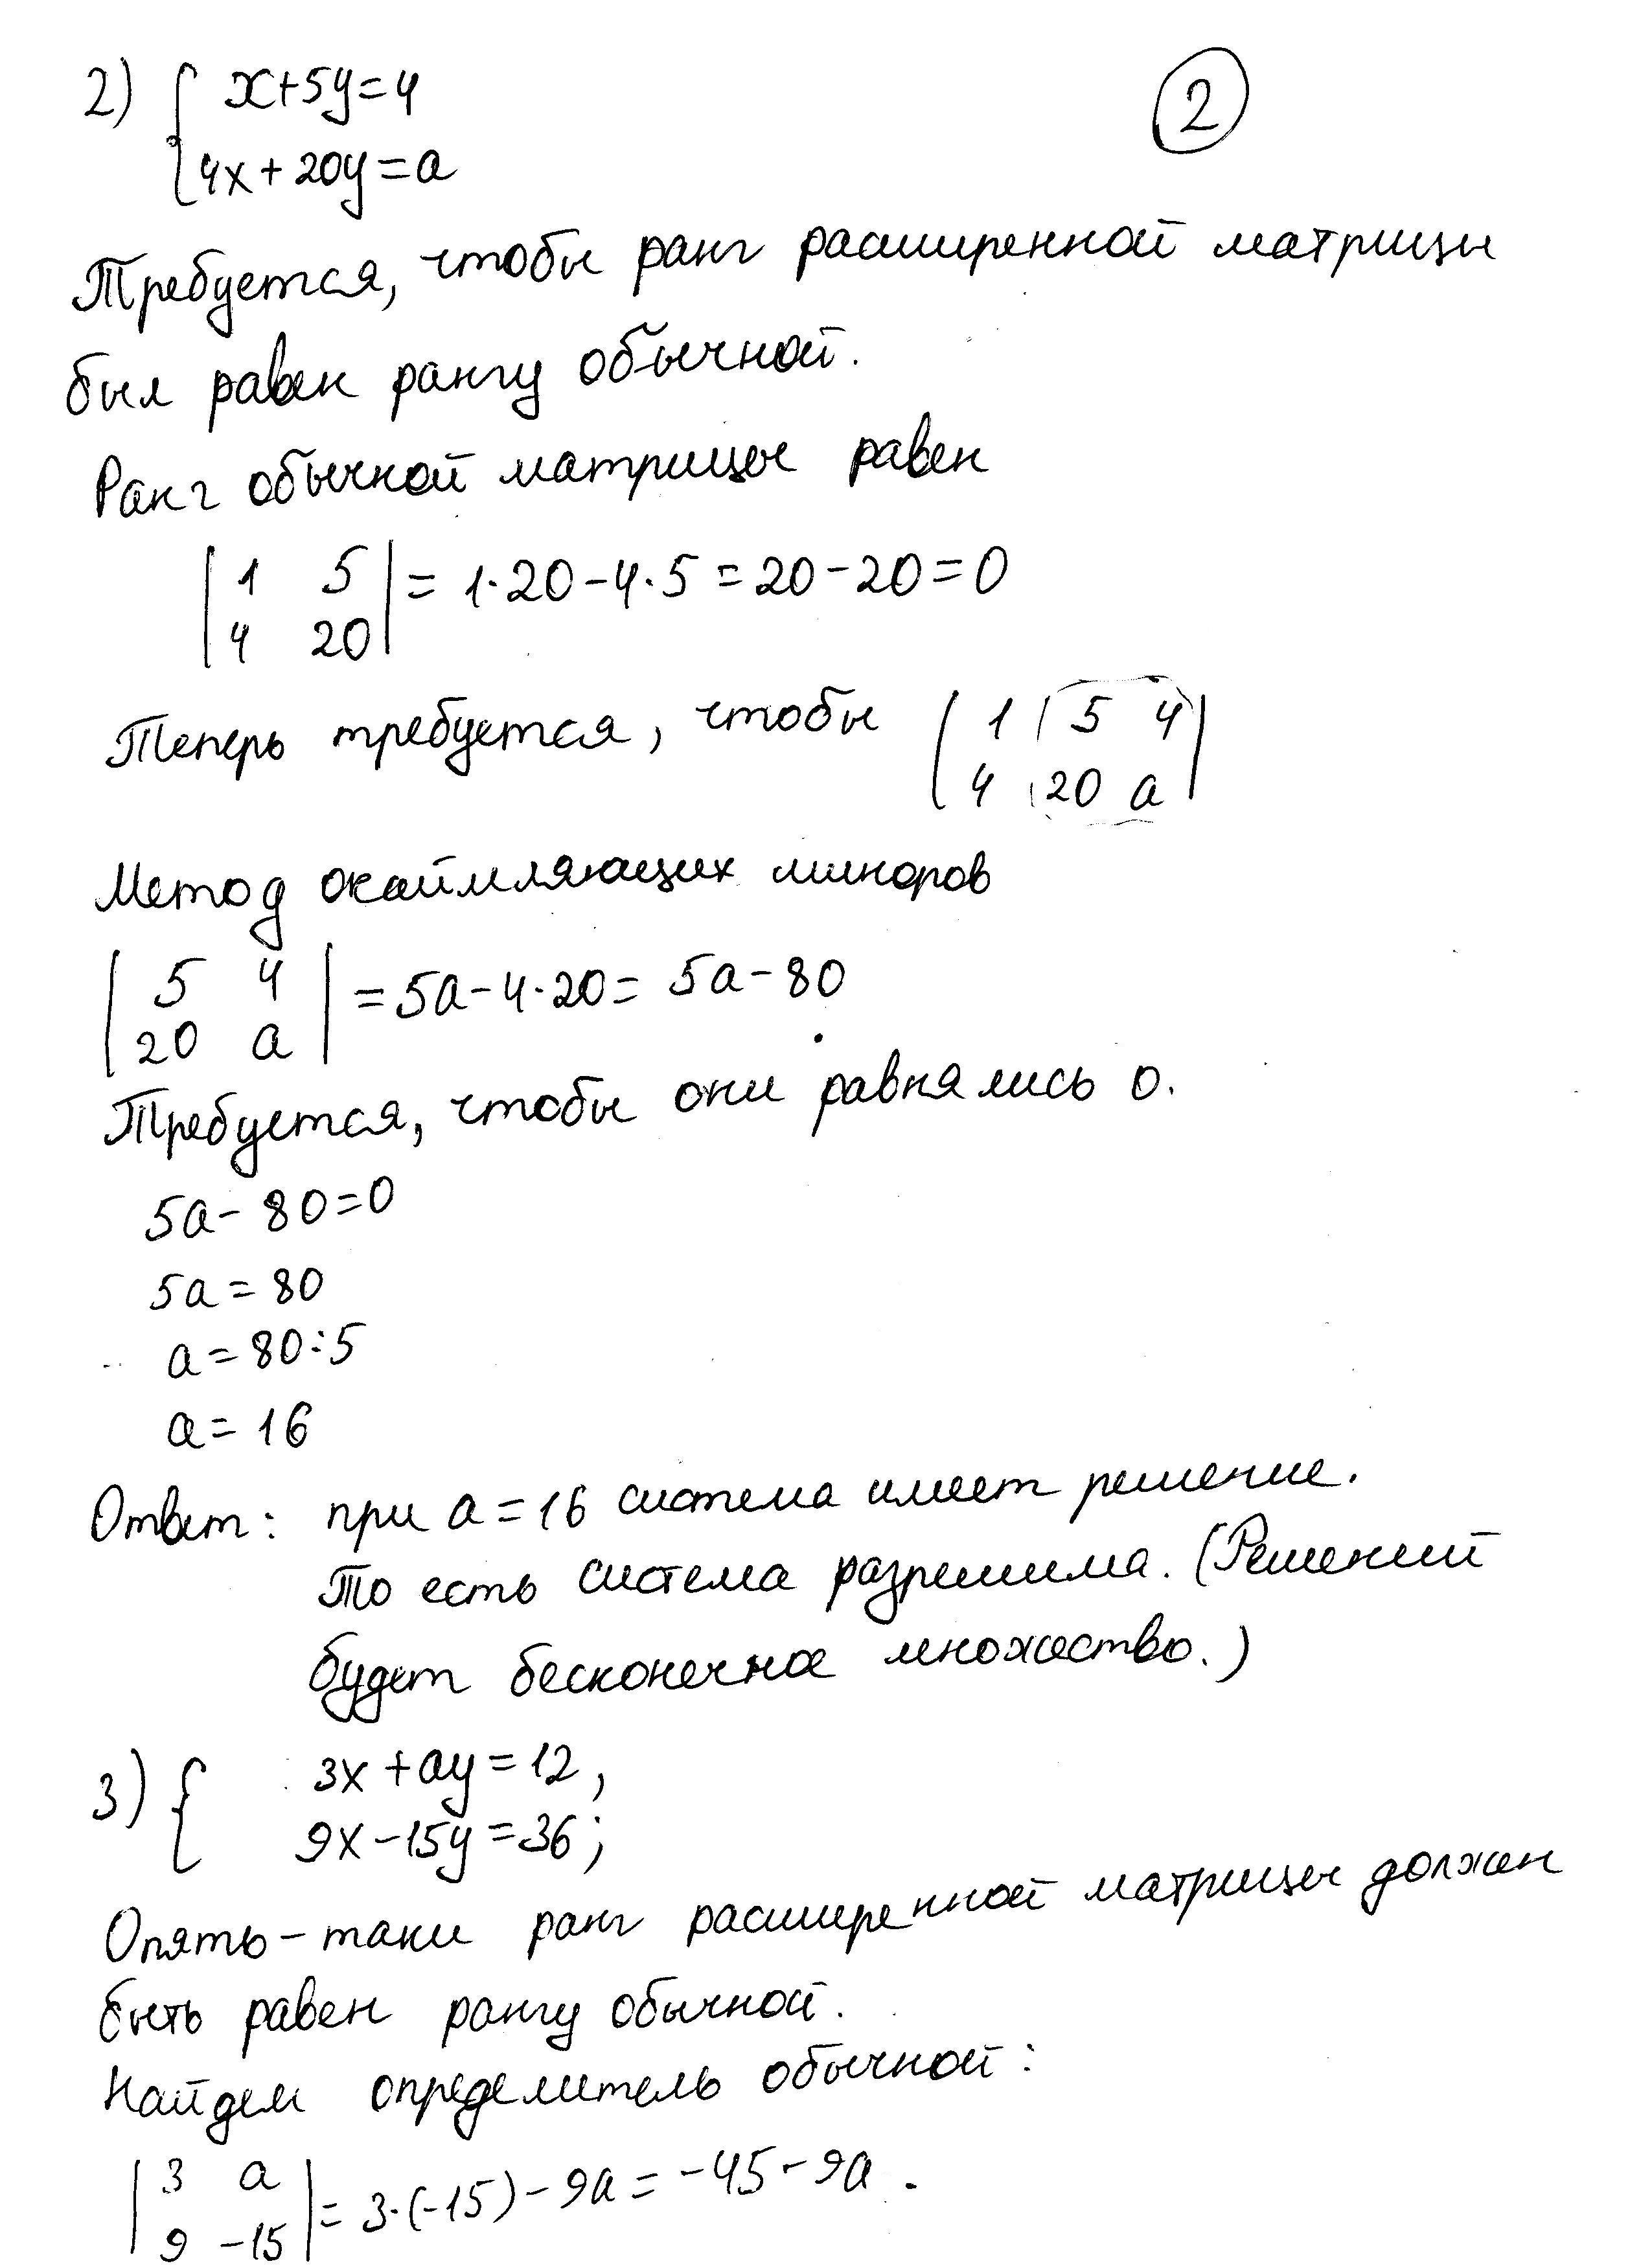 2) { x+5y=4
②
4x+20y=a
Требуется, чтобы ранг расширенной матрицы
был равен рангу обычной.
Ранг обычной матрицы равен
| 1 5 | = 1·20-4·5=20-20=0
| 4 20 |
Теперь требуется, чтобы ( 1 | 5 4 )
( 4 | 20 a )
Метод окаймляющих миноров
| 5 4 | = 5a-4·20= 5a-80
| 20 a |
Требуется, чтобы они равнялись 0.
5a-80=0
5a=80
a=80:5
a=16
Ответ: при a=16 система имеет решение.
То есть система разрешима. (Решений
будет бесконечное множество.)
3) { 3x+ay=12,
9x-15y=36;
Опять-таки ранг расширенной матрицы должен
быть равен рангу обычной.
Найдем определитель обычной:
| 3 a | = 3·(-15)-9a=-45-9a.
| 9 -15 |